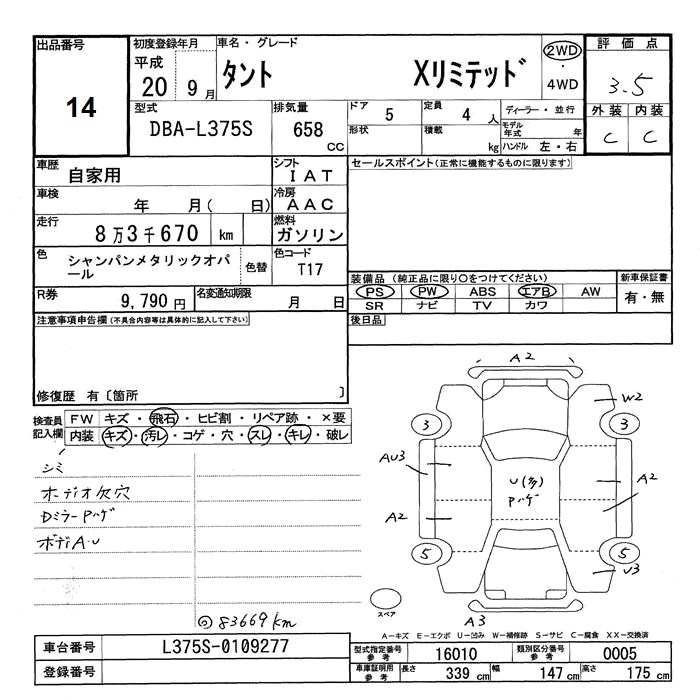 出品番号
14
初度登録年月
平成
20 9月
車名・グレード
タント Xリミテッド
2WD
・
4WD
評価点
3.5
外装 内装
C C
型式
DBA-L375S
排気量
658 CC
ドア 5
定員 4 人
形状
積載 kg
ディーラー・並行
モデル年式 年
ハンドル 左・右
車歴
自家用
シフト
IAT
車検
年 月( 日)
冷房
AAC
走行
8万3千670 km
燃料
ガソリン
色
シャンパンメタリックオパール
色替
色コード
T17
R券
9,790 円
名変通知期限
月 日
セールスポイント(正常に機能するものに限ります)
装備品(純正品に限り○をつけてください)
PS PW ABS エアB AW
SR ナビ TV カワ
新車保証書
有・無
後日品
注意事項申告欄(不具合内容等は具体的に記入して下さい)
修復歴 有〔箇所 〕
検査員記入欄
FW キズ・飛石・ヒビ割・リペア跡・×要
内装 キズ・汚レ・コゲ・穴・スレ・キレ・破レ
シミ
オーディオ欠穴
Dミラー Pハゲ
ボディA・U
◎83669km
A2
W2
3 3
AU3
U(多)
Pハゲ
A2
A2
5 5
U3
A3
スペア
A-キズ E-エクボ U-凹み W-補修跡 S-サビ C-腐食 XX-交換済
車台番号
L375S-0109277
登録番号
型式指定番号
参考
16010
類別区分番号
参考
0005
車庫証明用
参考
長さ 339 cm
幅 147 cm
高さ 175 cm